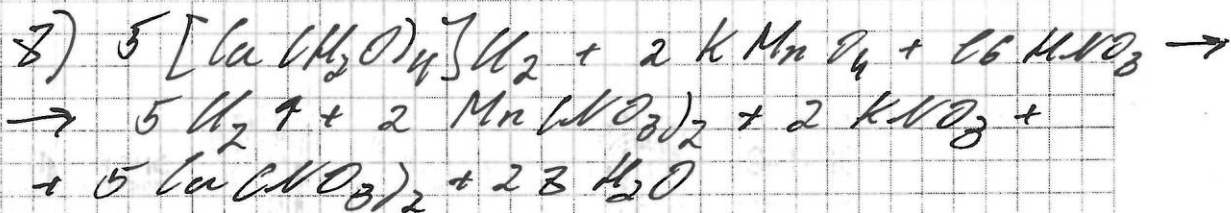 8) 5 [Cu(H₂O)₄]Cl₂ + 2 KMnO₄ + 16 HNO₃ →
→ 5 Cl₂↑ + 2 Mn(NO₃)₂ + 2 KNO₃ +
+ 5 Cu(NO₃)₂ + 28 H₂O